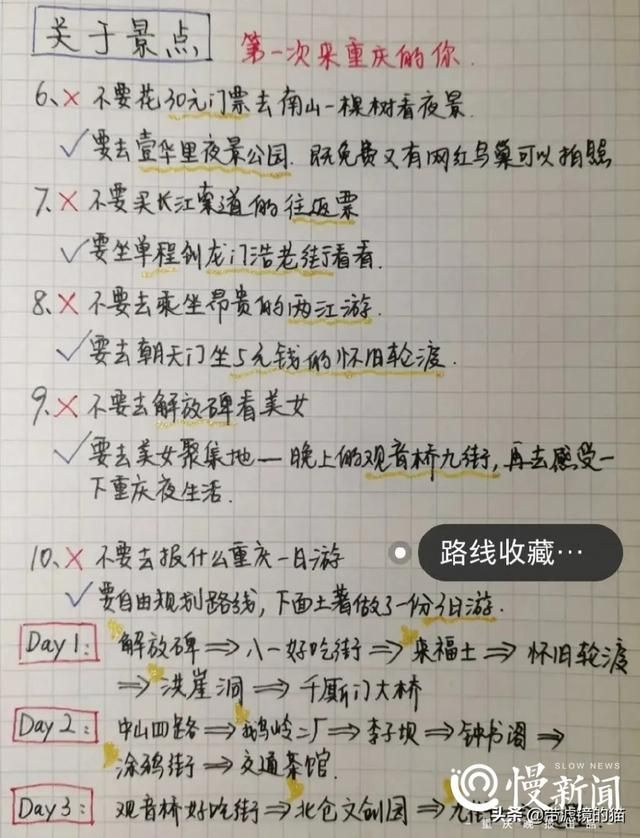 关于景点
第一次来重庆的你.
6、× 不要花30元门票去南山一棵树看夜景.
✓要去壹华里夜景公园.既免费又有网红鸟巢可以拍照
7、× 不要买长江索道的往返票
✓要坐单程到龙门浩老街看看.
8、× 不要去乘坐昂贵的两江游.
✓要去朝天门坐5元钱的怀旧轮渡.
9、× 不要去解放碑看美女
✓要去美女聚集地一晚上的观音桥九街,再去感受一
下重庆夜生活.
10、× 不要去报什么重庆一日游
路线收藏…
✓要自由规划路线,下面土著做了一份3日游.
Day1: 解放碑⇒八一好吃街⇒来福士⇒怀旧轮渡
⇒洪崖洞⇒千厮门大桥
Day2: 中山四路⇒鹅岭二厂⇒李子坝⇒钟书阁⇒
涂鸦街⇒交通茶馆.
SLOW NEWS
慢新闻
Day3: 观音桥好吃街⇒北仓文创园⇒九街
重庆晚报出品
头条@带滤镜的猫